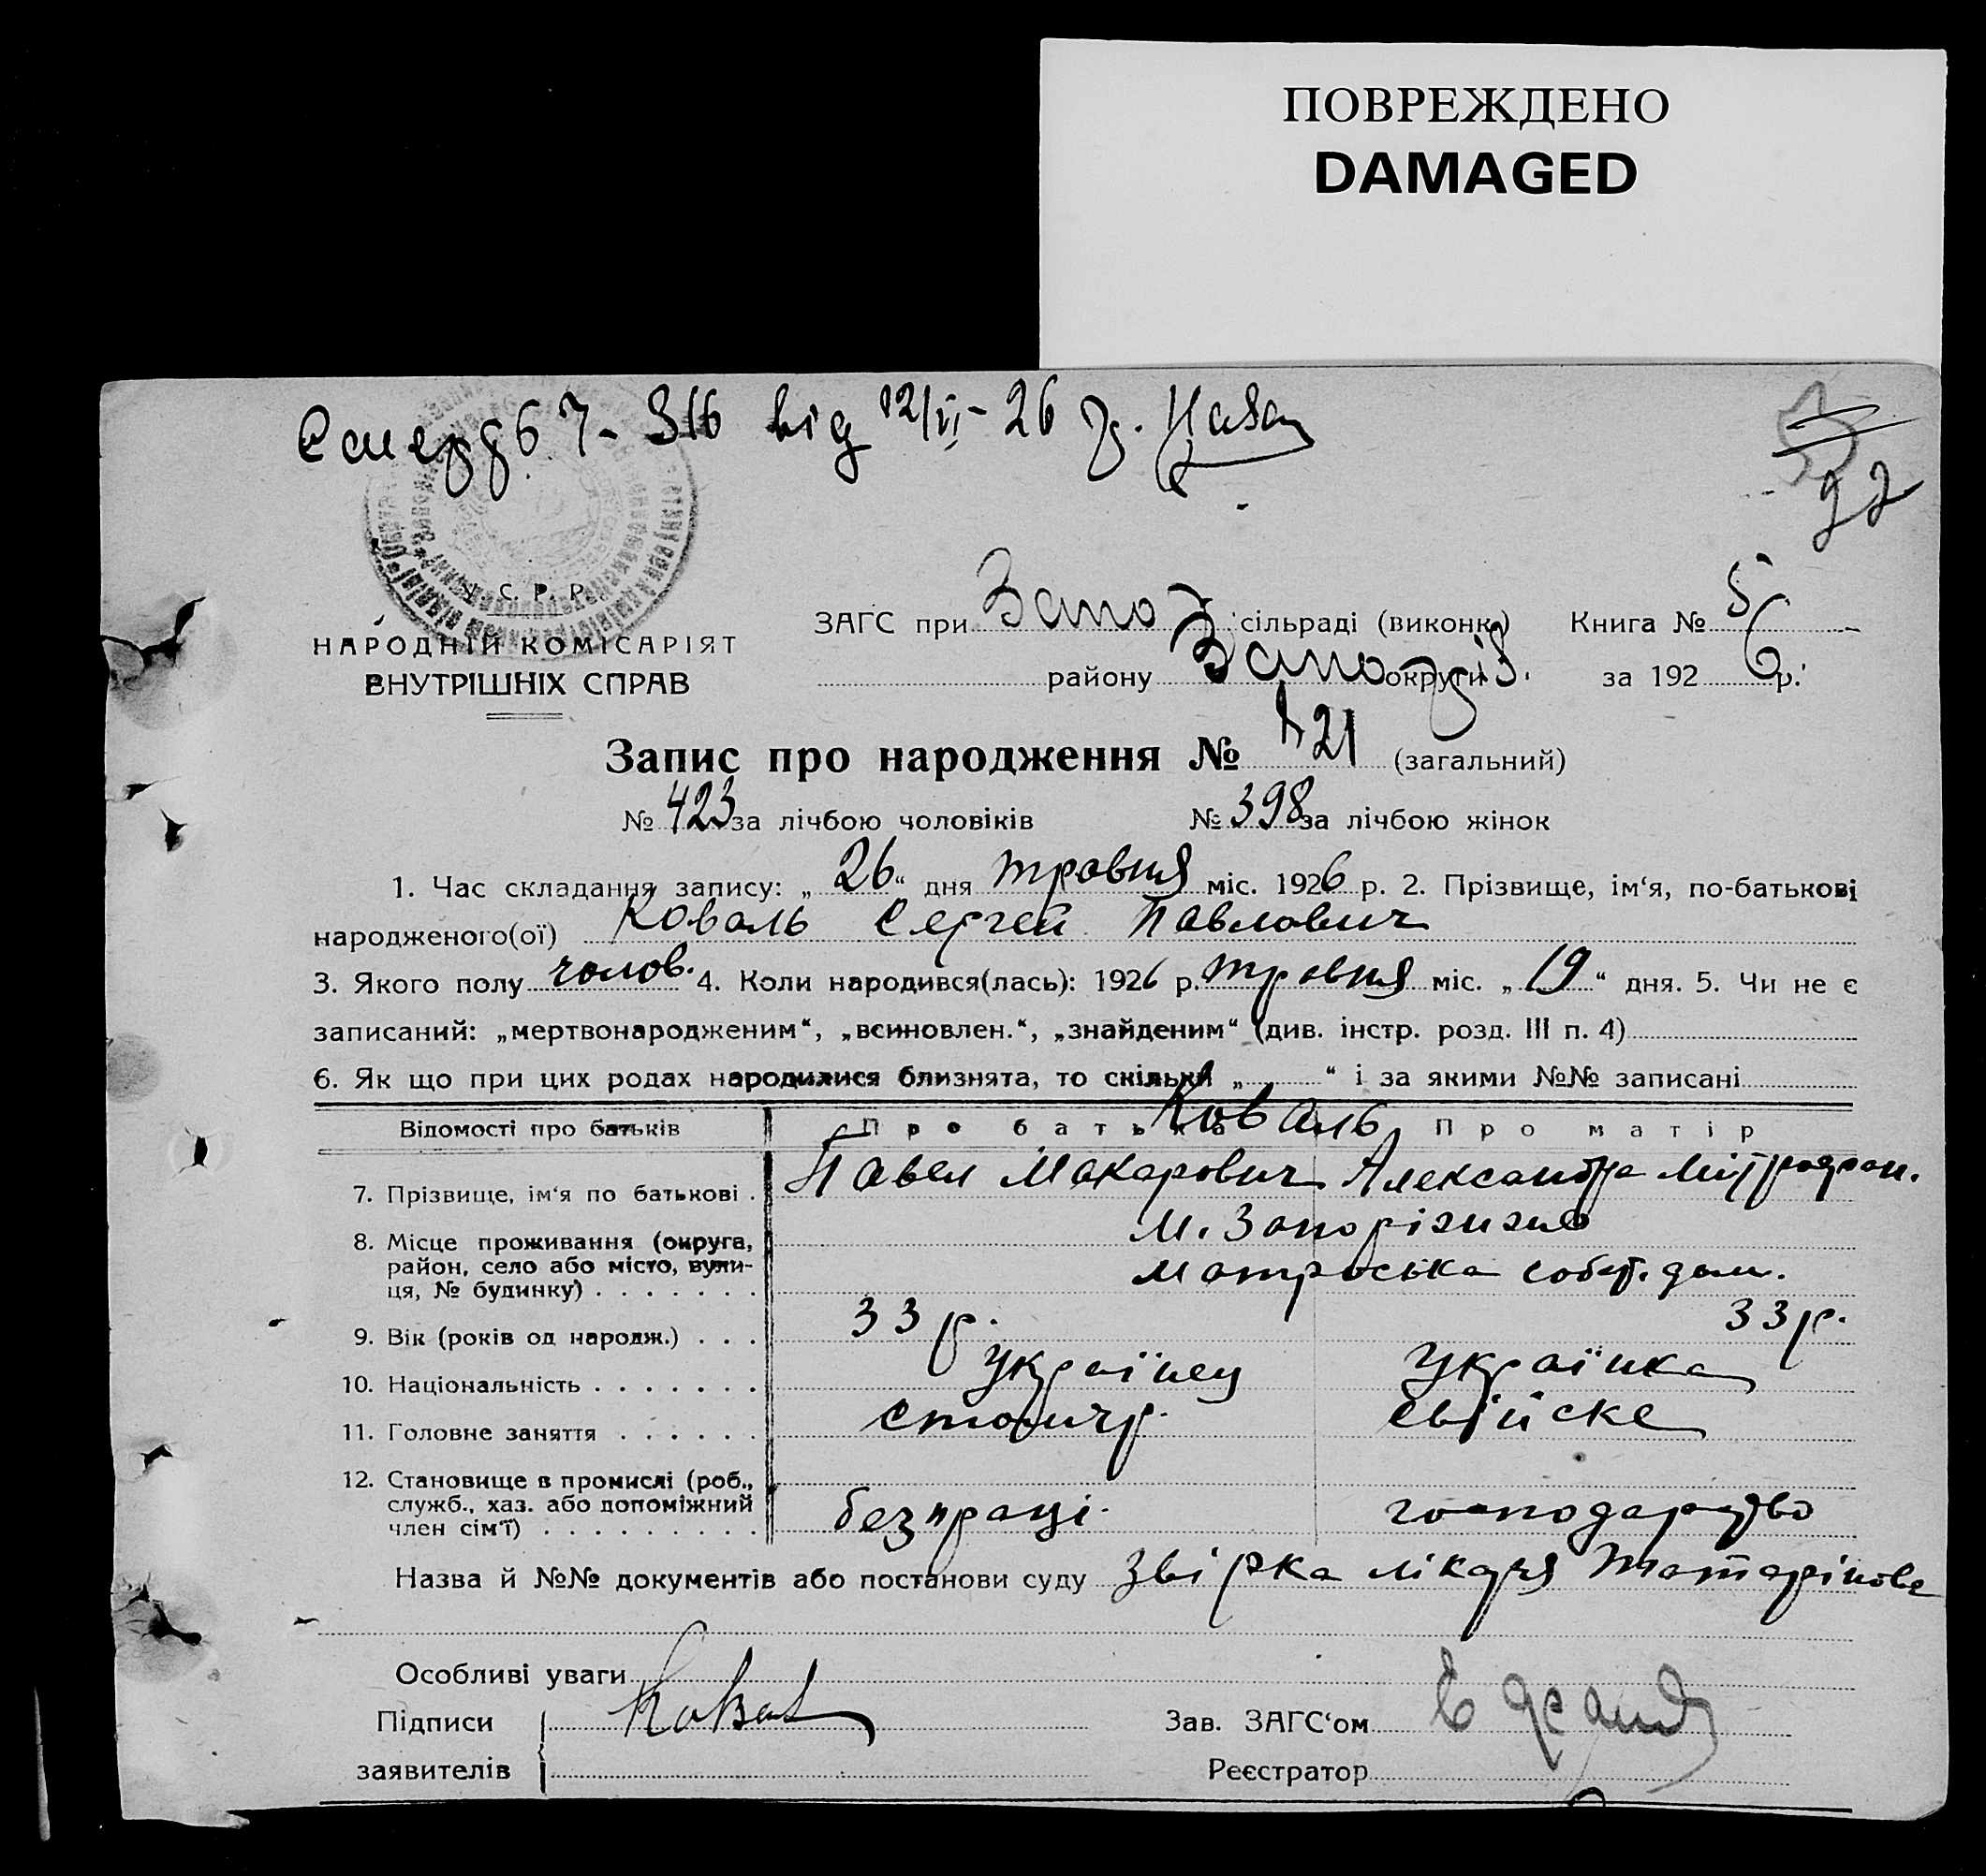 ПОВРЕЖДЕНО
DAMAGED
від 12/VI-26 р.
92
У. С. Р. Р.
НАРОДНІЙ КОМІСАРІЯТ
ВНУТРІШНІХ СПРАВ
ЗАГС при Запо сільраді (виконк.) Книга № 5
району Запоріз. округи за 1926 р.
Запис про народження № 821 (загальний)
№ 423 за лічбою чоловіків № 398 за лічбою жінок
1. Час складання запису: „26“ дня травня міс. 1926 р. 2. Прізвище, ім‘я, по-батькові
народженого(ої) Коваль Сергей Павлович
3. Якого полу чолов. 4. Коли народився(лась): 1926 р. травня міс. „19“ дня. 5. Чи не є
записаний: „мертвонародженим“, „всиновлен.“, „знайденим“ (див. інстр. розд. III п. 4)
6. Як що при цих родах народилися близнята, то скільки „ “ і за якими №№ записані
Відомості про батьків Про батька Про матір
Коваль
7. Прізвище, ім‘я по батькові . Павел Макарович Александра Митрофан.
8. Місце проживання (округа, район, село або місто, вули-ця, № будинку) . . . . . . . м. Запоріжжя
Матроська собст. дом.
9. Вік (років од народж.) . . . 33 р. 33 р.
10. Національність . . . . . . . українец українка
11. Головне заняття . . . . . . столяр. свійске
12. Становище в промислі (роб., служб., хаз. або допоміжний член сім‘ї) . . . . . . . . . безпраці. господарство
Назва й №№ документів або постанови суду звірка лікаря Татарінова
Особливі уваги
Підписи Коваль Зав. ЗАГС‘ом
заявителів Реєстратор